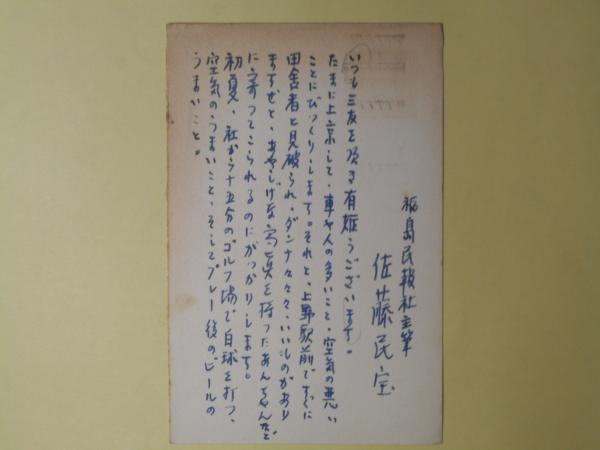 福島民報社主筆
佐藤民宝
いつも三友を頂き有難うございます。
たまに上京して、車や人の多いこと、空気の悪い
ことにびっくりします。それと、上野駅前ですぐに
田舎者と見破られ、ダンナ々々々、いいものがあり
ますぜと、あやしげな写真を持ったあんちゃんなど
に寄ってこられるのにがっかりします。
初夏、社から十五分のゴルフ場で白球を打つ、
空気のうまいこと、そしてプレー後のビールの
うまいこと。